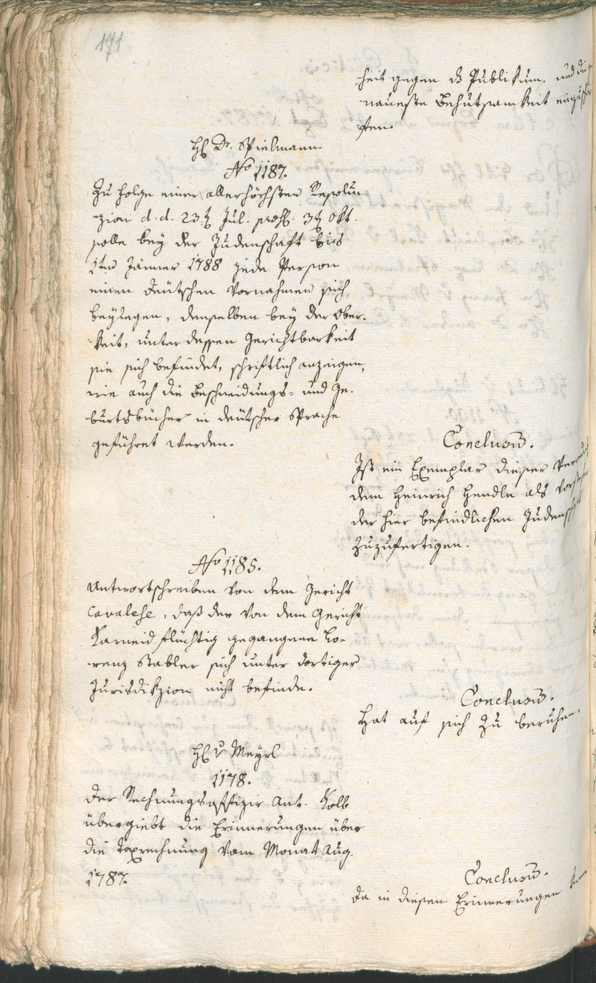 171
heit gegen ds Publikum, und die
naueste Behutsamkeit
H Dr. Spielmann
No 1187.
Zu folge einer allerhöchsten Resolu-
zion d. d. 23t Jul. 3t Okt.
solle bey der Judenschaft bis
1ten Jänner 1788 jede Person
einen deutschen Vornahmen sich
beylegen, denselben bey der Ober-
keit, unter dessen Gerichtbarkeit
sie sich befindet, schriftlich anzeigen,
wie auch die Beschneidungs- und Ge-
burtsbücher in deutscher Sprache
geführet werden.
Conclusum.
Ist ein Exemplar dieser
dem Heinrich Hendle als
der hier befindlichen Judenschaft
zuzufertigen.
No 1185.
Antwortschreiben von dem Gericht
Cavalese, daß der von dem Gericht
Karneid flüchtig gegangene Lo-
renz Stabler sich unter dortiger
Jurisdikzion nicht befinde.
Conclusum.
Hat auf sich zu beruhen.
H v Meyrl
1178.
Der Rechnungsoffizir Ant. Kolb
übergiebt die Erinnerungen über
die Taxrechnung vom Monat Aug.
1787.
Conclusum.
Da in diesen Erinnerungen